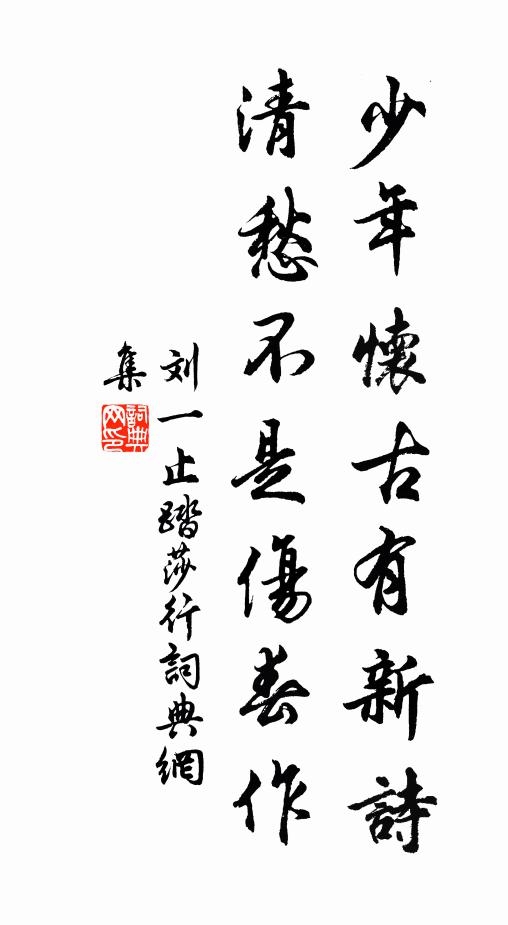 少年懷古有新詩
清愁不是傷春作
刘一止踏莎行詞典網
集
詞典网印